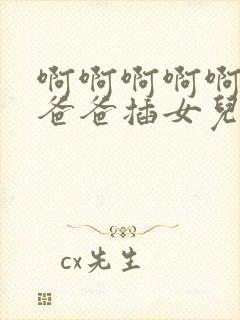 啊啊啊啊啊
爸爸插女兒
cx先生